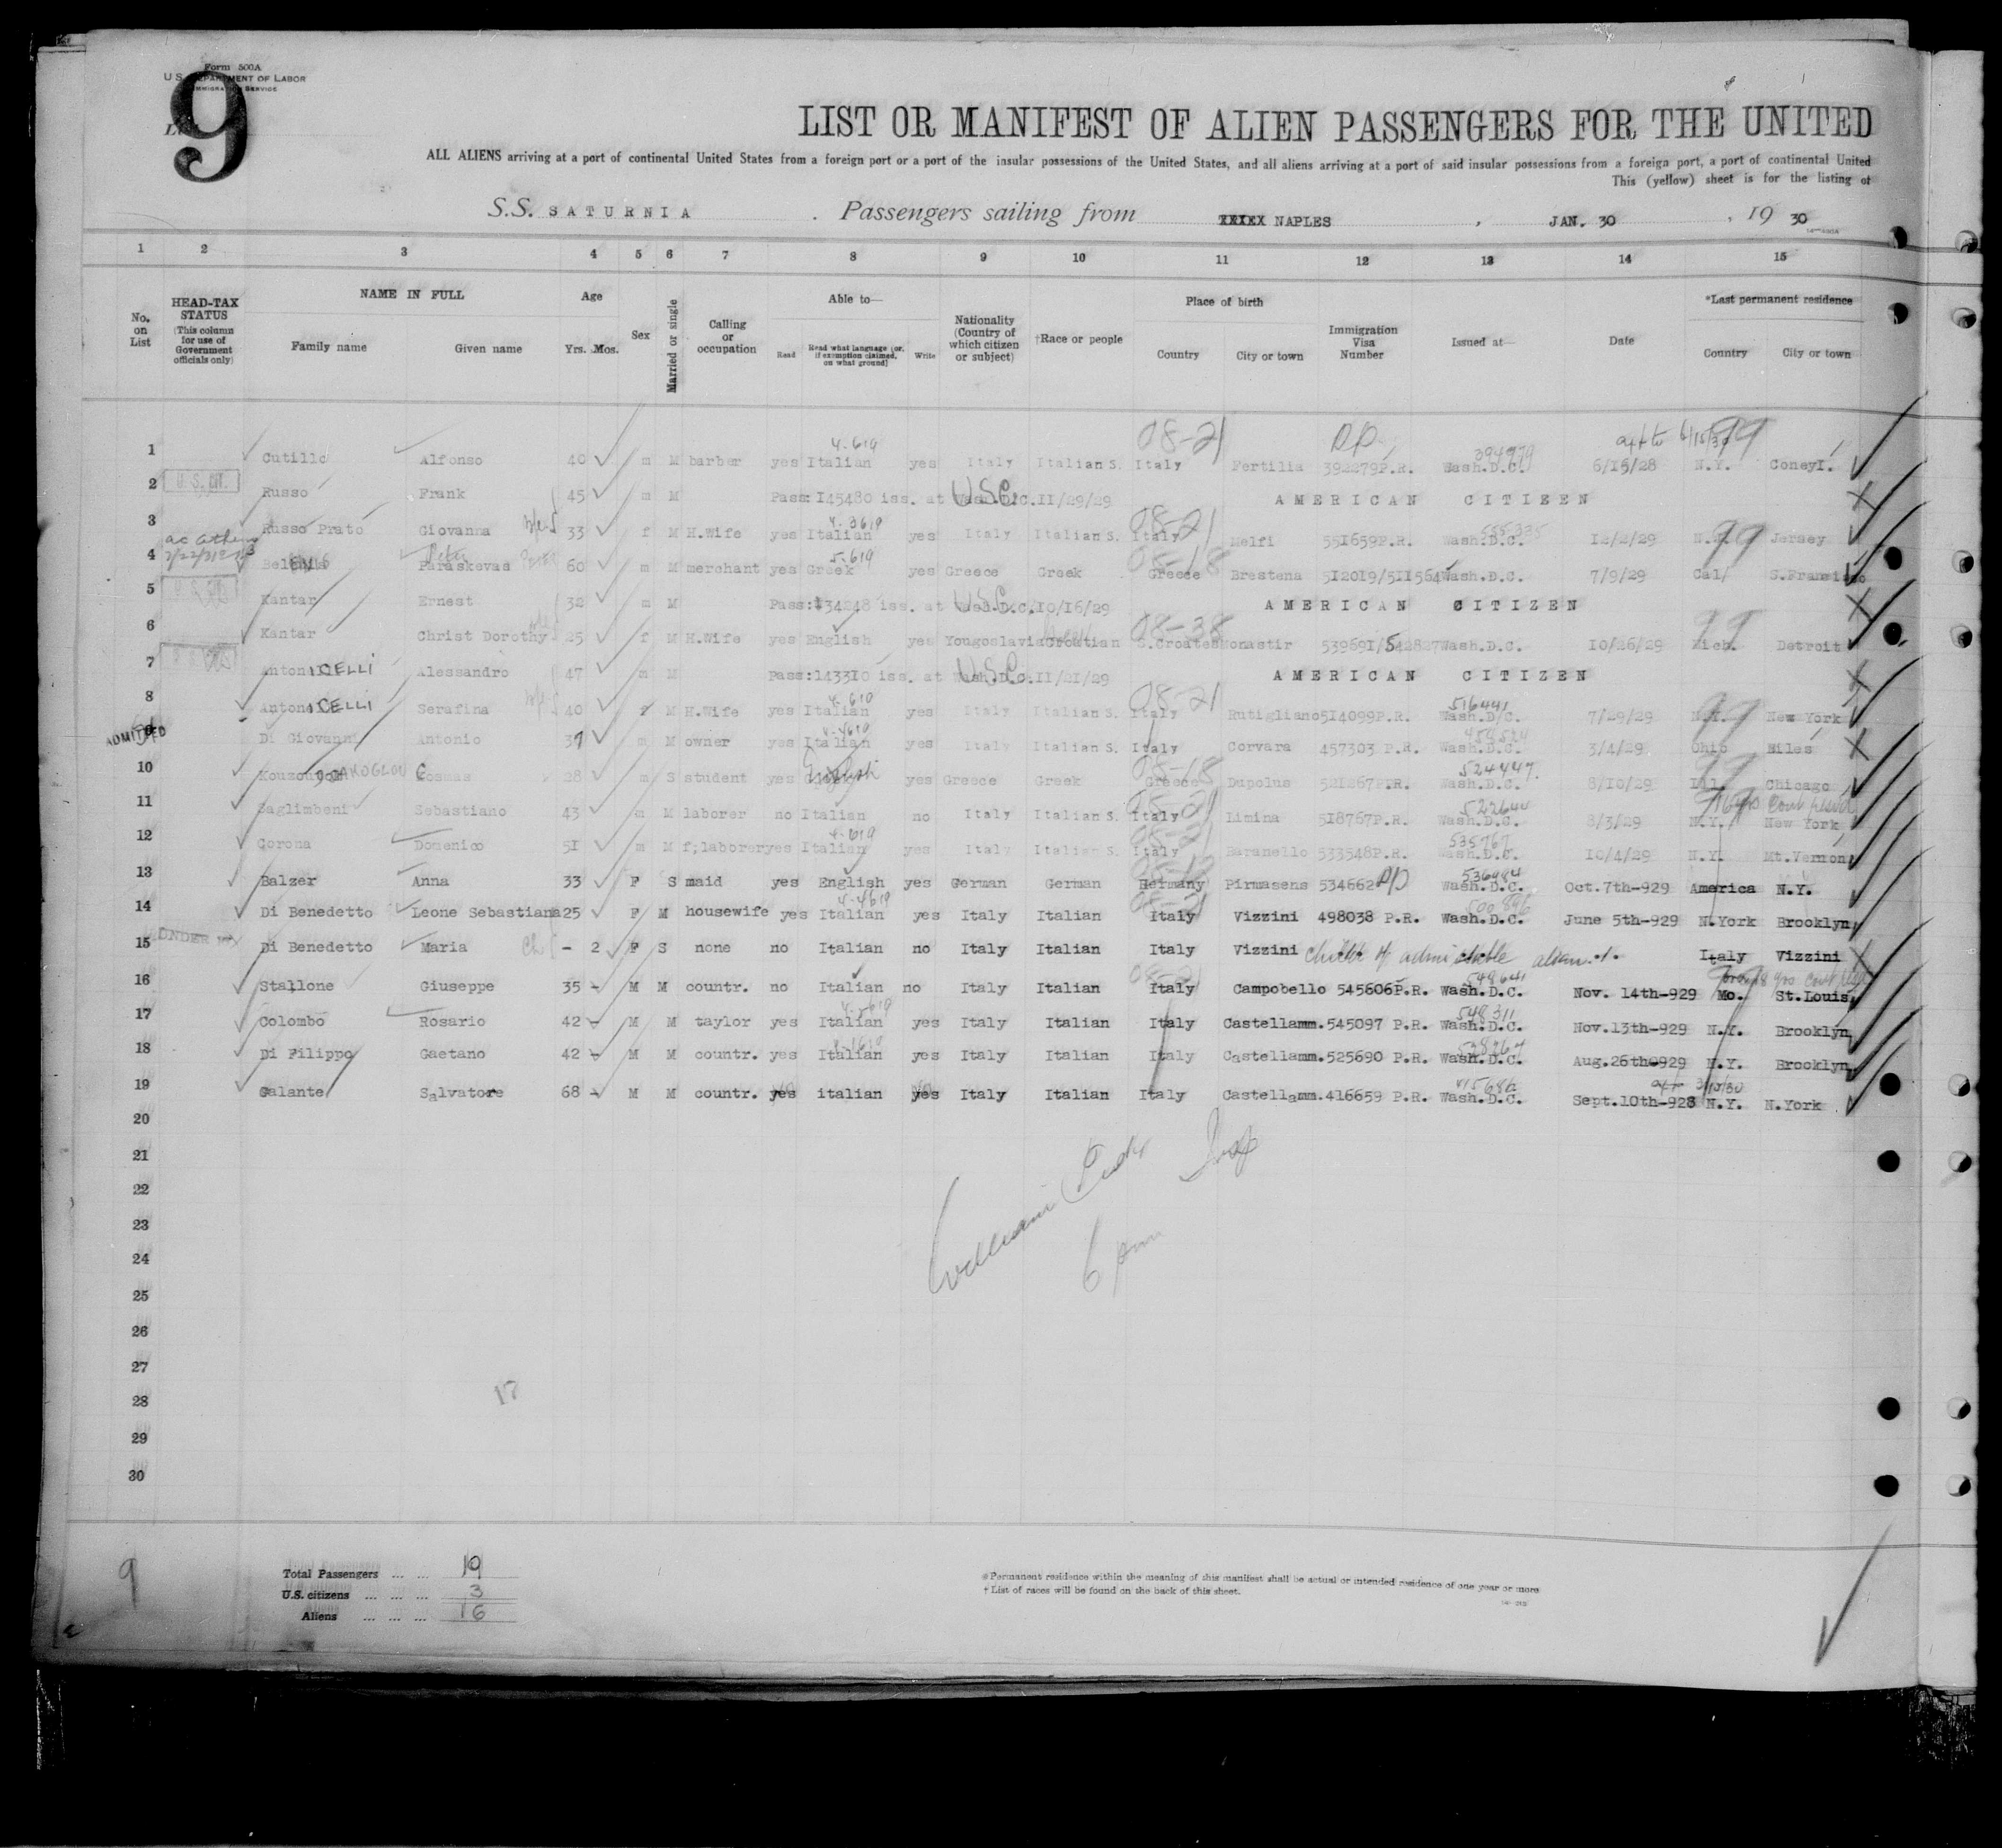 Form 500A
U.S. DEPARTMENT OF LABOR
IMMIGRATION SERVICE
9
LIST OR MANIFEST OF ALIEN PASSENGERS FOR THE UNITED
ALL ALIENS arriving at a port of continental United States from a foreign port or a port of the insular possessions of the United States, and all aliens arriving at a port of said insular possessions from a foreign port, a port of continental United
This (yellow) sheet is for the listing of
S.S. SATURNIA . Passengers sailing from NAPLES , JAN. 30 , 19 30
1 2 3 4 5 6 7 8 9 10 11 12 13 14 15
No. on List
HEAD-TAX STATUS (This column for use of Government officials only)
NAME IN FULL Family name Given name
Age Yrs. Mos.
Sex
Married or single
Calling or occupation
Able to— Read Read what language (or, if exemption claimed, on what ground) Write
Nationality (Country of which citizen or subject)
†Race or people
Place of birth Country City or town
Immigration Visa Number
Issued at—
Date
*Last permanent residence Country City or town
1 Cutillo Alfonso 40 m M barber yes Italian 4-619 yes Italy Italian S. Italy 08-21 Fertilia 392279P.R. Wash.D.C. 394979 6/15/28 N.Y. 99 ConeyI.
2 Russo Frank 45 m M Pass: 145480 iss. at Wash.D.C. 11/29/29 U.S.C. AMERICAN CITIZEN
3 Russo Prato Giovanna 33 f M H.Wife yes Italian yes Italy Italian S. Italy 08-21 Melfi 551659P.R. Wash.D.C. 12/2/29 99 Jersey
4 Paraskevas 60 m M merchant yes Greek 5-619 yes Greece Greek Greece 08-18 Brestena 512019/511564 Wash.D.C. 7/9/29 Cal/ S.Fransisco
5 Kantar Ernest 32 m M Pass: 34248 iss. at Wash.D.C. 10/16/29 U.S.C. AMERICAN CITIZEN
6 Kantar Christ Dorothy 25 f M H.Wife yes English yes Yougoslavia Croatian 08-38 Monastir 539691/542827 Wash.D.C. 10/26/29 Mich. 99 Detroit
7 AntoniCELLI Alessandro 47 m M Pass:143310 iss. at Wash.D.C. 11/21/29 U.S.C. AMERICAN CITIZEN
8 AntoniCELLI Serafina 40 f M H.Wife yes Italian 4-619 yes Italy Italian S. Italy 08-21 Rutigliano 514099P.R. Wash.D.C. 516441 7/29/29 N.Y. 99 New York
ADMITTED
9 Di Giovanni Antonio 37 m M owner yes Italian yes Italy Italian S. Italy Corvara 457303 P.R. Wash.D.C. 3/4/29 Ohio Niles
10 Cosmas 28 m S student yes English yes Greece Greek Greece 08-18 Dupolus 521267P.R. Wash.D.C. 524447 8/10/29 Ill. 99 Chicago
11 Saglimbeni Sebastiano 43 m M laborer no Italian no Italy Italian S. Italy Limina 518767P.R. Wash.D.C. 522644 8/3/29 N.Y. New York
12 Corona Domenico 51 m M f;laborer yes Italian 4-619 yes Italy Italian S. Italy Baranello 533548P.R. Wash.D.C. 535767 10/4/29 N.Y. Mt.Vernon
13 Balzer Anna 33 F S maid yes English yes German German Germany Pirmasens 534662 Wash.D.C. 536984 Oct.7th-929 America N.Y.
14 Di Benedetto Leone Sebastiana 25 F M housewife yes Italian 4-4619 yes Italy Italian Italy Vizzini 498038 P.R. Wash.D.C. June 5th-929 N.York Brooklyn
15 Di Benedetto Maria Ch - 2 F S none no Italian no Italy Italian Italy Vizzini child of admissible alien Italy Vizzini
16 Stallone Giuseppe 35 M M countr. no Italian no Italy Italian Italy Campobello 545606P.R. Wash.D.C. 549641 Nov. 14th-929 Mo. St.Louis
17 Colombo Rosario 42 M M taylor yes Italian yes Italy Italian Italy Castellamm. 545097 P.R. Wash.D.C. 548311 Nov.13th-929 N.Y. Brooklyn
18 Di Filippo Gaetano 42 M M countr. yes Italian yes Italy Italian Italy Castellamm. 525690 P.R. Wash.D.C. Aug.26th-929 N.Y. Brooklyn
19 Galante Salvatore 68 M M countr. yes italian yes Italy Italian Italy Castellamm. 416659 P.R. Wash.D.C. Sept.10th-928 N.Y. N.York
20
21
22
23
24
25
26
27
28
29
30
William Insp
6 pm
17
9
Total Passengers ... ... 19
U.S. citizens ... ... ... 3
Aliens ... ... ... 16
* Permanent residence within the meaning of this manifest shall be actual or intended residence of one year or more.
† List of races will be found on the back of this sheet.